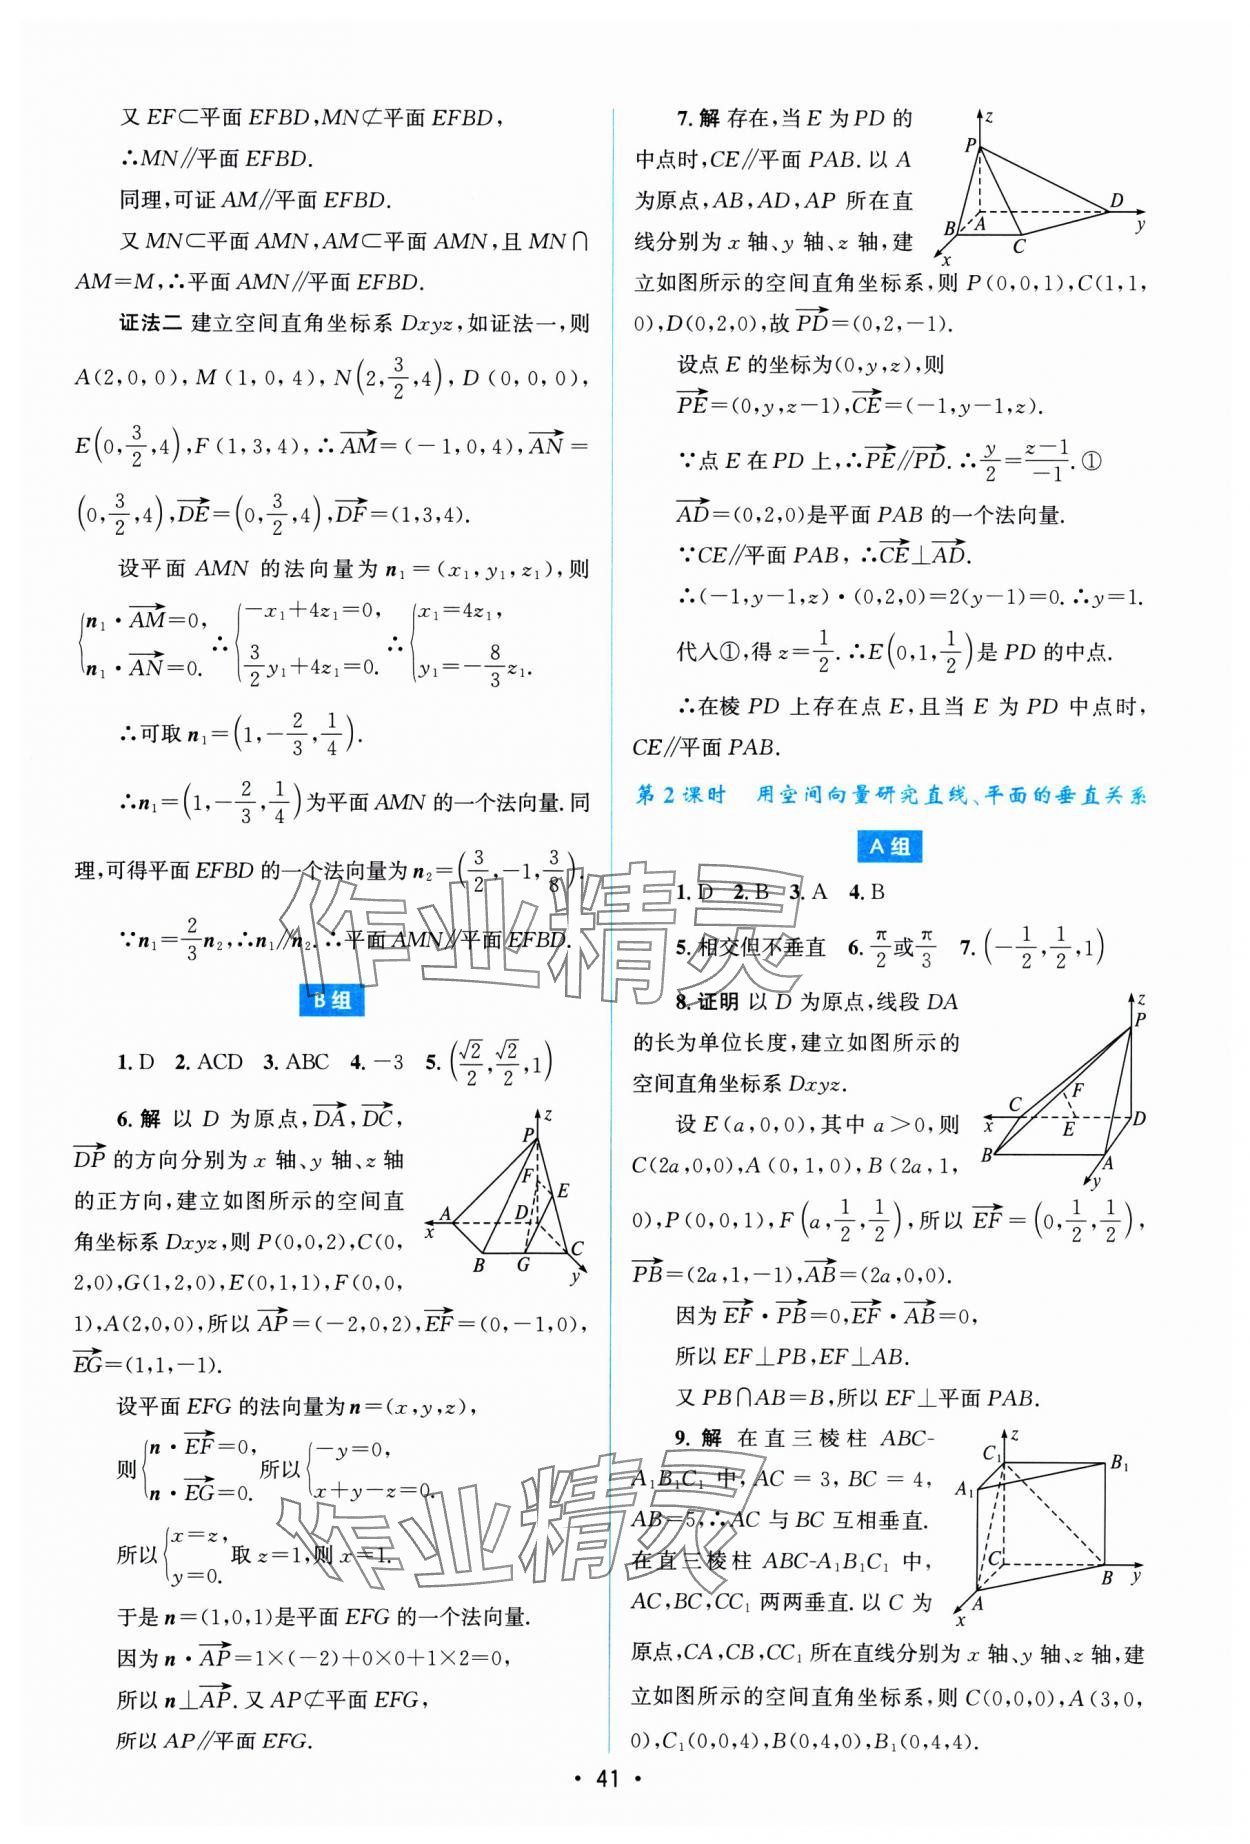 又 EF⊂平面 EFBD,MN⊄平面 EFBD,
∴MN∥平面 EFBD.
同理,可证 AM∥平面 EFBD.
又 MN⊂平面 AMN,AM⊂平面 AMN,且 MN∩
AM=M,∴平面 AMN∥平面 EFBD.
证法二 建立空间直角坐标系 Dxyz,如证法一,则
A(2,0,0),M(1,0,4),N(2,3/2,4),D(0,0,0),
E(0,3/2,4),F(1,3,4),∴AM→=(-1,0,4),AN→=
(0,3/2,4),DE→=(0,3/2,4),DF→=(1,3,4).
设平面 AMN 的法向量为 n₁=(x₁,y₁,z₁),则
{n₁·AM→=0, n₁·AN→=0. ∴{-x₁+4z₁=0, 3/2y₁+4z₁=0. ∴{x₁=4z₁, y₁=-8/3z₁.
∴可取 n₁=(1,-2/3,1/4).
∴n₁=(1,-2/3,1/4)为平面 AMN 的一个法向量.同
理,可得平面 EFBD 的一个法向量为 n₂=(3/2,-1,3/8).
∵n₁=2/3n₂,∴n₁∥n₂.∴平面 AMN∥平面 EFBD.
B 组
1. D 2. ACD 3. ABC 4. -3 5. (√2/2,√2/2,1)
6. 解 以 D 为原点,DA→,DC→,
DP→ 的方向分别为 x 轴、y 轴、z 轴
的正方向,建立如图所示的空间直
角坐标系 Dxyz,则 P(0,0,2),C(0,
2,0),G(1,2,0),E(0,1,1),F(0,0,
1),A(2,0,0),所以 AP→=(-2,0,2),EF→=(0,-1,0),
EG→=(1,1,-1).
z
P
F
E
A
D
x
B
G
C
y
设平面 EFG 的法向量为 n=(x,y,z),
则{n·EF→=0, n·EG→=0. 所以{-y=0, x+y-z=0.
所以{x=z, y=0. 取 z=1,则 x=1.
于是 n=(1,0,1)是平面 EFG 的一个法向量.
因为 n·AP→=1×(-2)+0×0+1×2=0,
所以 n⊥AP→.又 AP⊄平面 EFG,
所以 AP∥平面 EFG.
7. 解 存在,当 E 为 PD 的
中点时,CE∥平面 PAB.以 A
为原点,AB,AD,AP 所在直
线分别为 x 轴、y 轴、z 轴,建
立如图所示的空间直角坐标系,则 P(0,0,1),C(1,1,
0),D(0,2,0),故 PD→=(0,2,-1).
z
P
D
A
y
B
C
x
设点 E 的坐标为(0,y,z),则
PE→=(0,y,z-1),CE→=(-1,y-1,z).
∵点 E 在 PD 上,∴PE→∥PD→.∴y/2=z-1/-1.①
AD→=(0,2,0)是平面 PAB 的一个法向量.
∵CE∥平面 PAB,∴CE→⊥AD→.
∴(-1,y-1,z)·(0,2,0)=2(y-1)=0.∴y=1.
代入①,得 z=1/2.∴E(0,1,1/2)是 PD 的中点.
∴在棱 PD 上存在点 E,且当 E 为 PD 中点时,
CE∥平面 PAB.
第 2 课时 用空间向量研究直线、平面的垂直关系
A 组
1. D 2. B 3. A 4. B
5. 相交但不垂直 6. π/2或π/3 7. (-1/2,1/2,1)
8. 证明 以 D 为原点,线段 DA
的长为单位长度,建立如图所示的
空间直角坐标系 Dxyz.
设 E(a,0,0),其中 a>0,则
C(2a,0,0),A(0,1,0),B(2a,1,
0),P(0,0,1),F(a,1/2,1/2),所以 EF→=(0,1/2,1/2),
PB→=(2a,1,-1),AB→=(2a,0,0).
z
P
F
C
x
E
D
B
A
y
因为 EF→·PB→=0,EF→·AB→=0,
所以 EF⊥PB,EF⊥AB.
又 PB∩AB=B,所以 EF⊥平面 PAB.
9. 解 在直三棱柱 ABC-
A₁B₁C₁ 中,AC=3,BC=4,
AB=5,∴AC 与 BC 互相垂直.
在直三棱柱 ABC-A₁B₁C₁ 中,
AC,BC,CC₁ 两两垂直.以 C 为
原点,CA,CB,CC₁ 所在直线分别为 x 轴、y 轴、z 轴,建
立如图所示的空间直角坐标系,则 C(0,0,0),A(3,0,
0),C₁(0,0,4),B(0,4,0),B₁(0,4,4).
z
C₁
B₁
A₁
C
B
y
A
x
作业精灵
作业精灵
· 41 ·